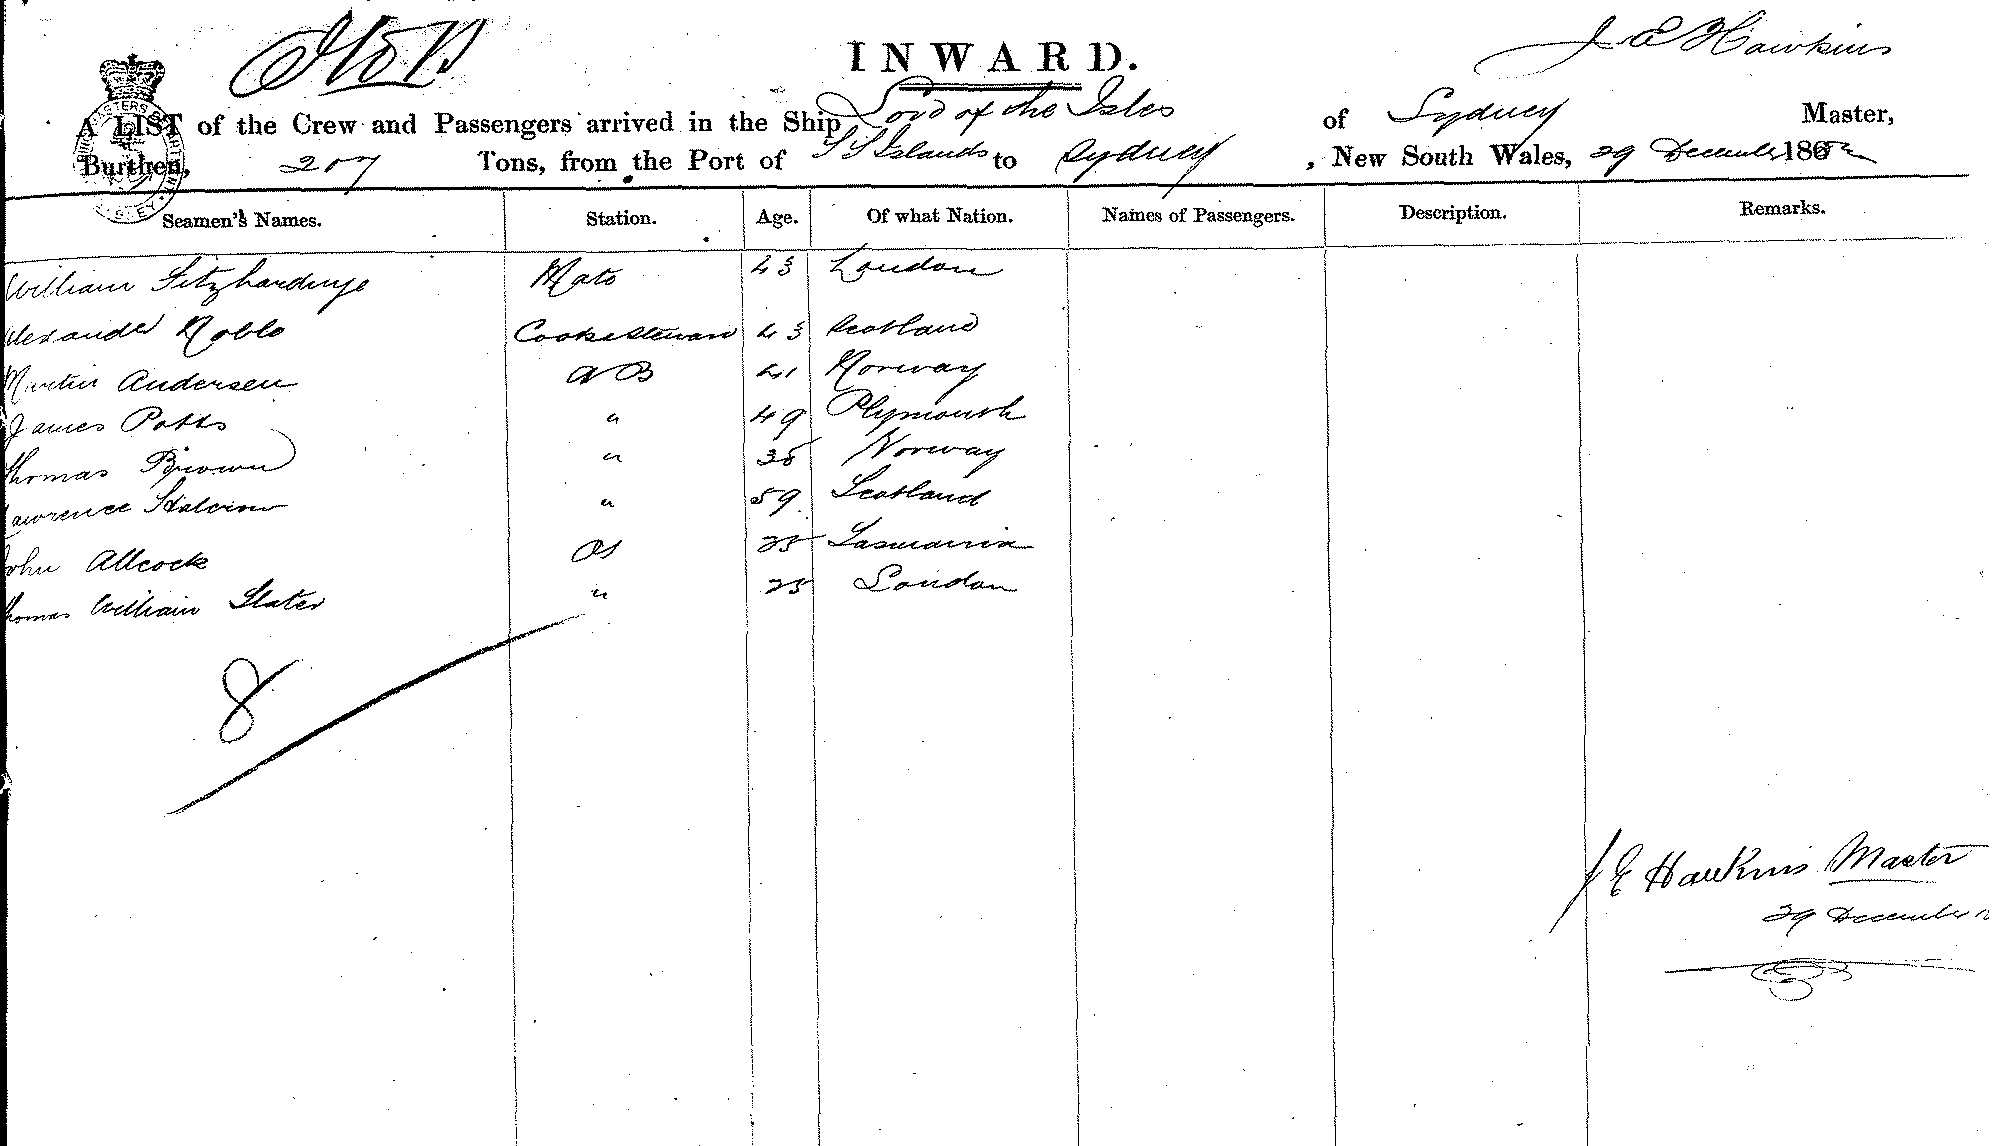 INWARD.
J E Hawkins
A LIST of the Crew and Passengers arrived in the Ship Lord of the Isles of Sydney Master,
Burthen, 207 Tons, from the Port of S S Islands to Sydney , New South Wales, 29 December 18
Seamen's Names. Station. Age. Of what Nation. Names of Passengers. Description. Remarks.
William Fitzhardinge Mate 43 London
Alexander Noble Cook & Steward 43 Scotland
Martin Andersen AB 41 Norway
James Potts " 49 Plymouth
Thomas Brown " 38 Norway
Lawrence " 59 Scotland
John Allcock OS 25 Tasmania
Thomas William Slater " 25 London
8
J E Hawkins Master
29 December